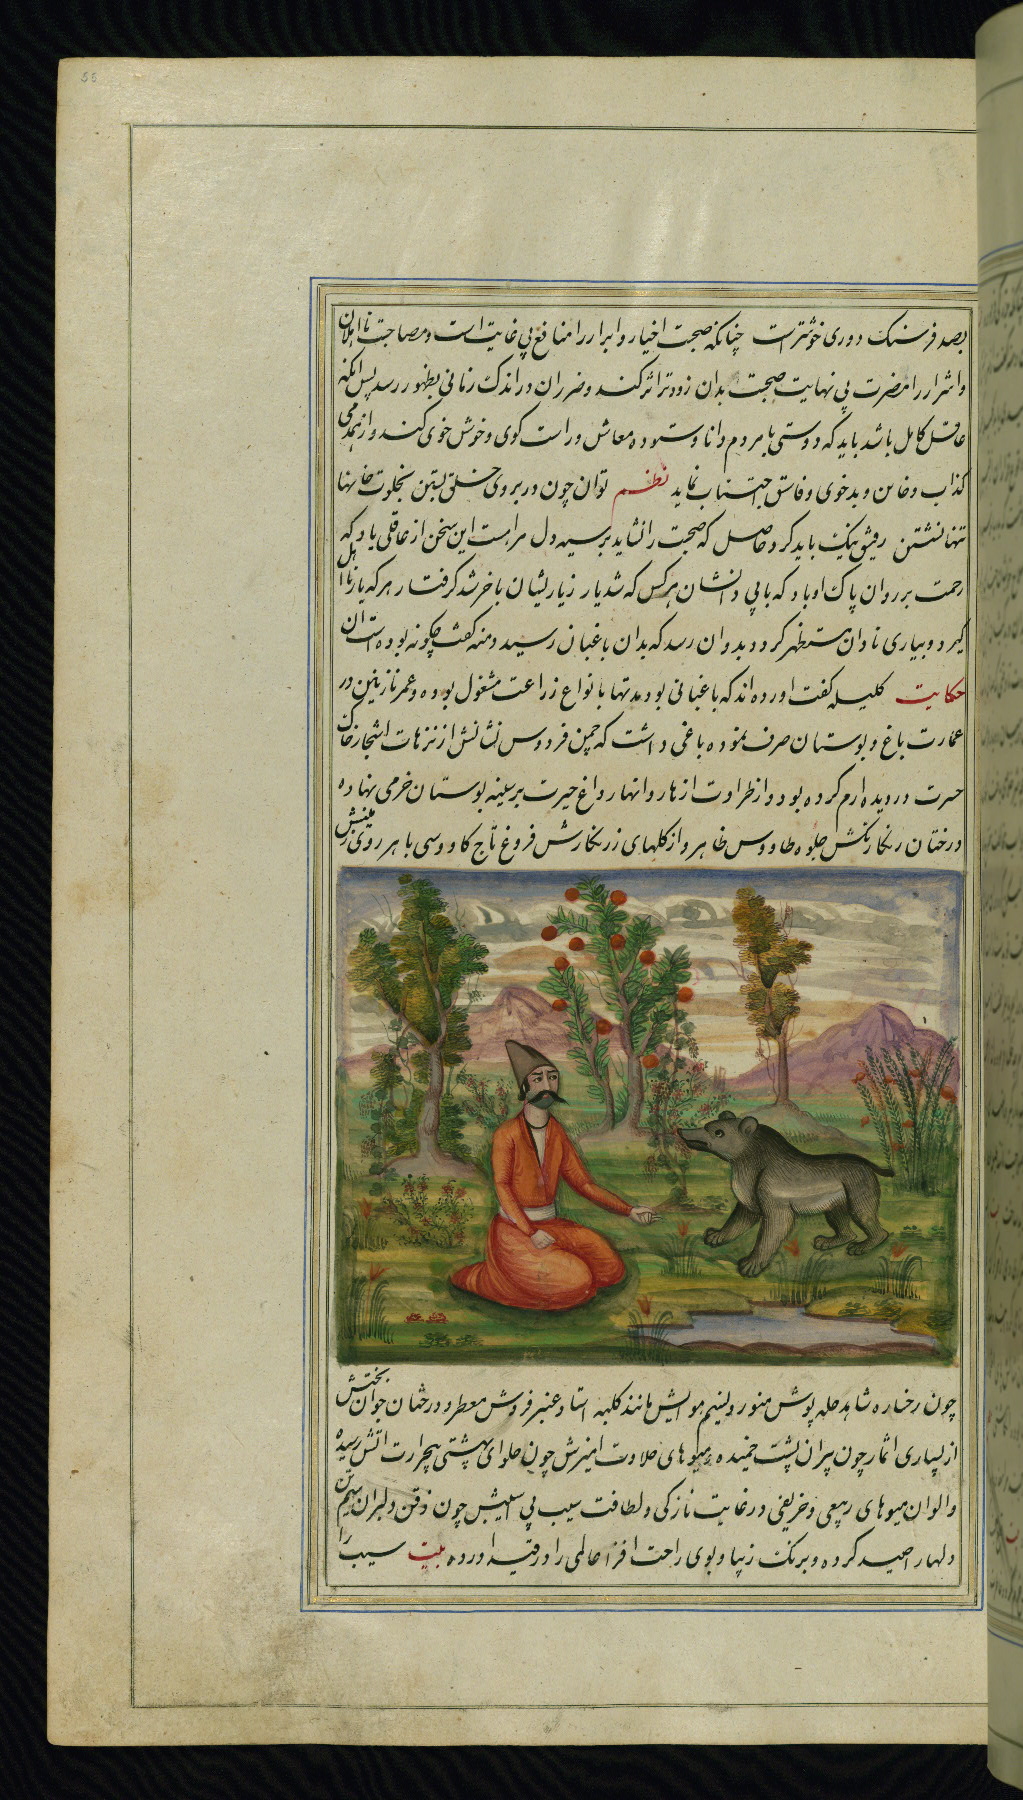 بصد فرسنک دوری خوشتر است چنانکه صحبت اخیار و ابرار را منافع بی غایت است و مصاحبت نااهلان
و اشرار را مضرت بی نهایت صحبت بدان زودتر اثر کند و ضرر ان در اندک زمانی بظهور رسد پس انکه
عاقل کامل باشد باید که دوستی با مردم دانا و ستوده معاش و راست کوی و خوش خوی کند و از همدمی
کذاب و خاین و بدخوی و فاسق اجتناب نماید نظم توان چون در بروی خلق بستن بخلوت خانها
تنها نشستن رفیق نیک باید کرد حاصل که صحبت را نشاید هر سیه دل مر است این سخن از عاقلی یاد که
رحمت بر روان پاک او باد که با بی دانشان هر کس که شد یار زیار یشان باخر شد کرفتار هر که یار نااهل
کیرد و بیاری نادان مستظهر کردد بدو ان رسد که بدان باغبان رسید دمنه کفت چکونه بوده است ان
حکایت کلیله کفت اورده اند که باغبانی بود مدتها با نواع زراعت مشغول بوده و عمر نازنین در
عمارت باغ و بوستان صرف نموده باغی داشت که چمن فردوس نشانش از نزهات اشجار خاک
حسرت در دیده ارم کرده بود و از طراوت ازهار و انهار داغ حیرت بر سینه بوستان خرمی نهاده
درختان رنکارنکش جلوه طاووس ظاهر و از کلهای زرنکارش فروغ تاج کاووسی باهر روی زمینش
چون رخساره شاهد حله پوش منور و نسیم هوایش مانند کلبه استاد عنبر فروش معطر و درختان جوان بختش
از بسیاری اثمار چون پیران پشت خمیده و میوهای حلاوت امیزش چون حلوای بهشتی بی حرارت اتش رسیده
و الوان میوهای ربیعی و خریفی در غایت نازکی و لطافت سیب بی اسیبش چون ذقن دلبران سیم تن
دلها را صید کرده و برنک زیبا و بوی راحت افزا عالمی را در قید اورده بیت سیب را